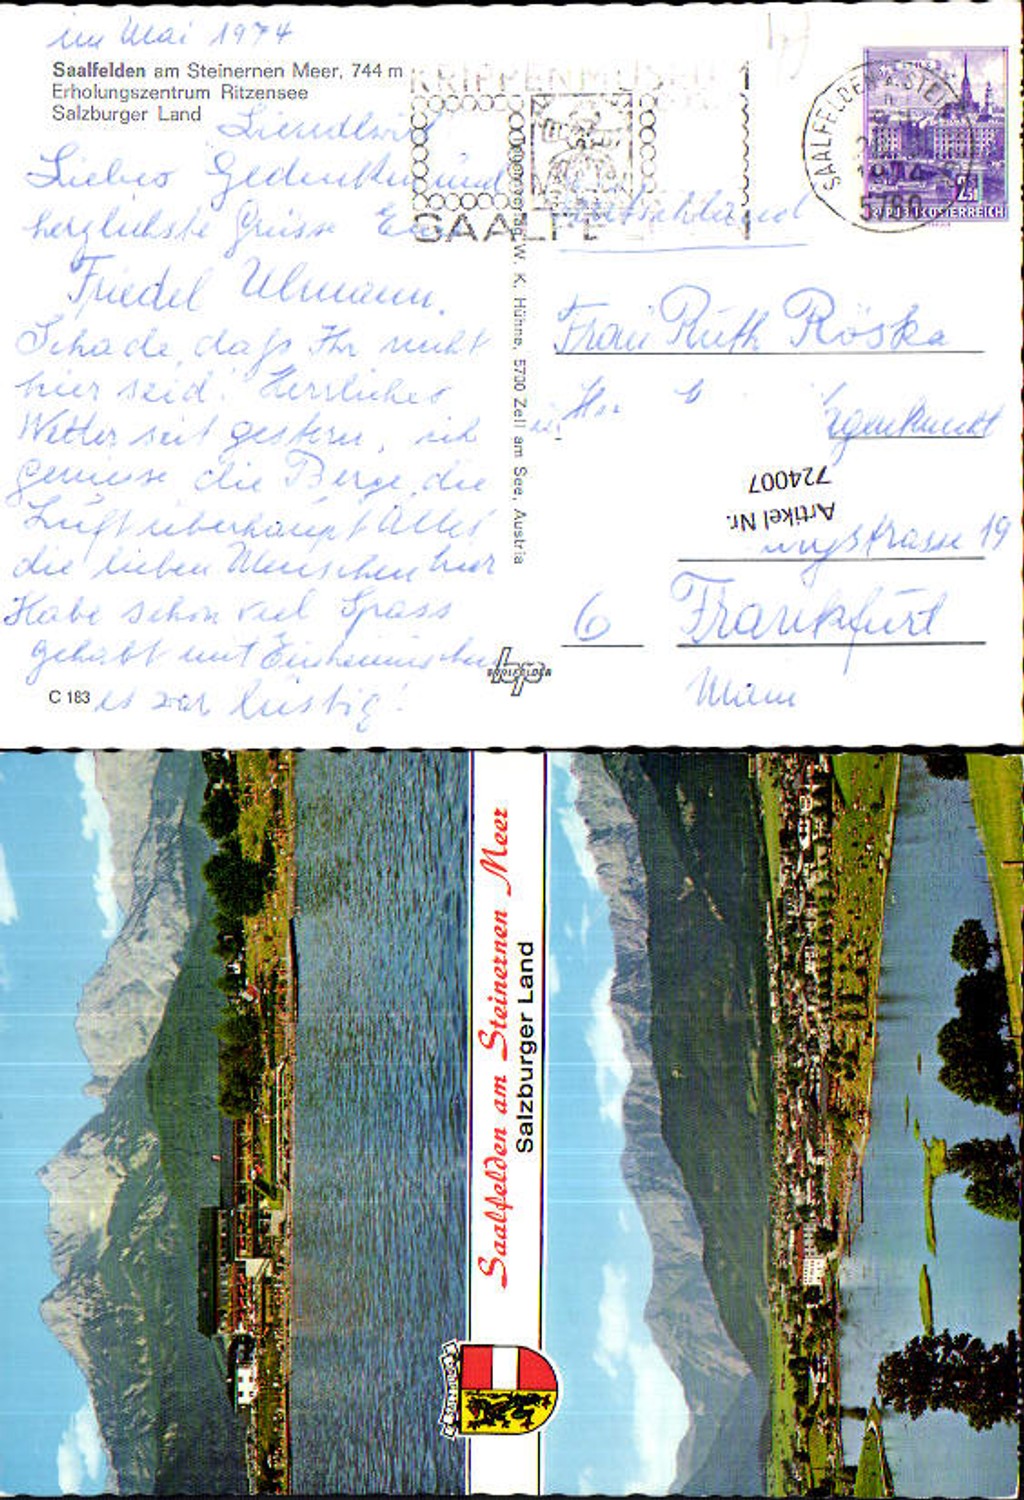 im Mai 1974
Saalfelden am Steinernen Meer, 744 m
Erholungszentrum Ritzensee
Salzburger Land
Liebes Gedenken und
herzlichste Grüsse
Friedel Ulmann.
Schade, daß Ihr nicht
hier seid! Herrliches
Wetter seit gestern, ich
geniese die Berge, die
Luft überhaupt Alles
die lieben Menschen hier
Habe schon viel Spass
gehabt mit Einheimischen
es war lustig!
C 183
W. K. Hühne, 5700 Zell am See, Austria
KRIPPENMUSEUM
SAALFE
SAALFELDEN A. STEIN
1974
5760
2.50
REPUBLIK ÖSTERREICH
Deutschland
Frau Ruth Röska
724007
Artikel Nr.
strasse 19
6 Frankfurt
Main
Saalfelden am Steinernen Meer
Salzburger Land